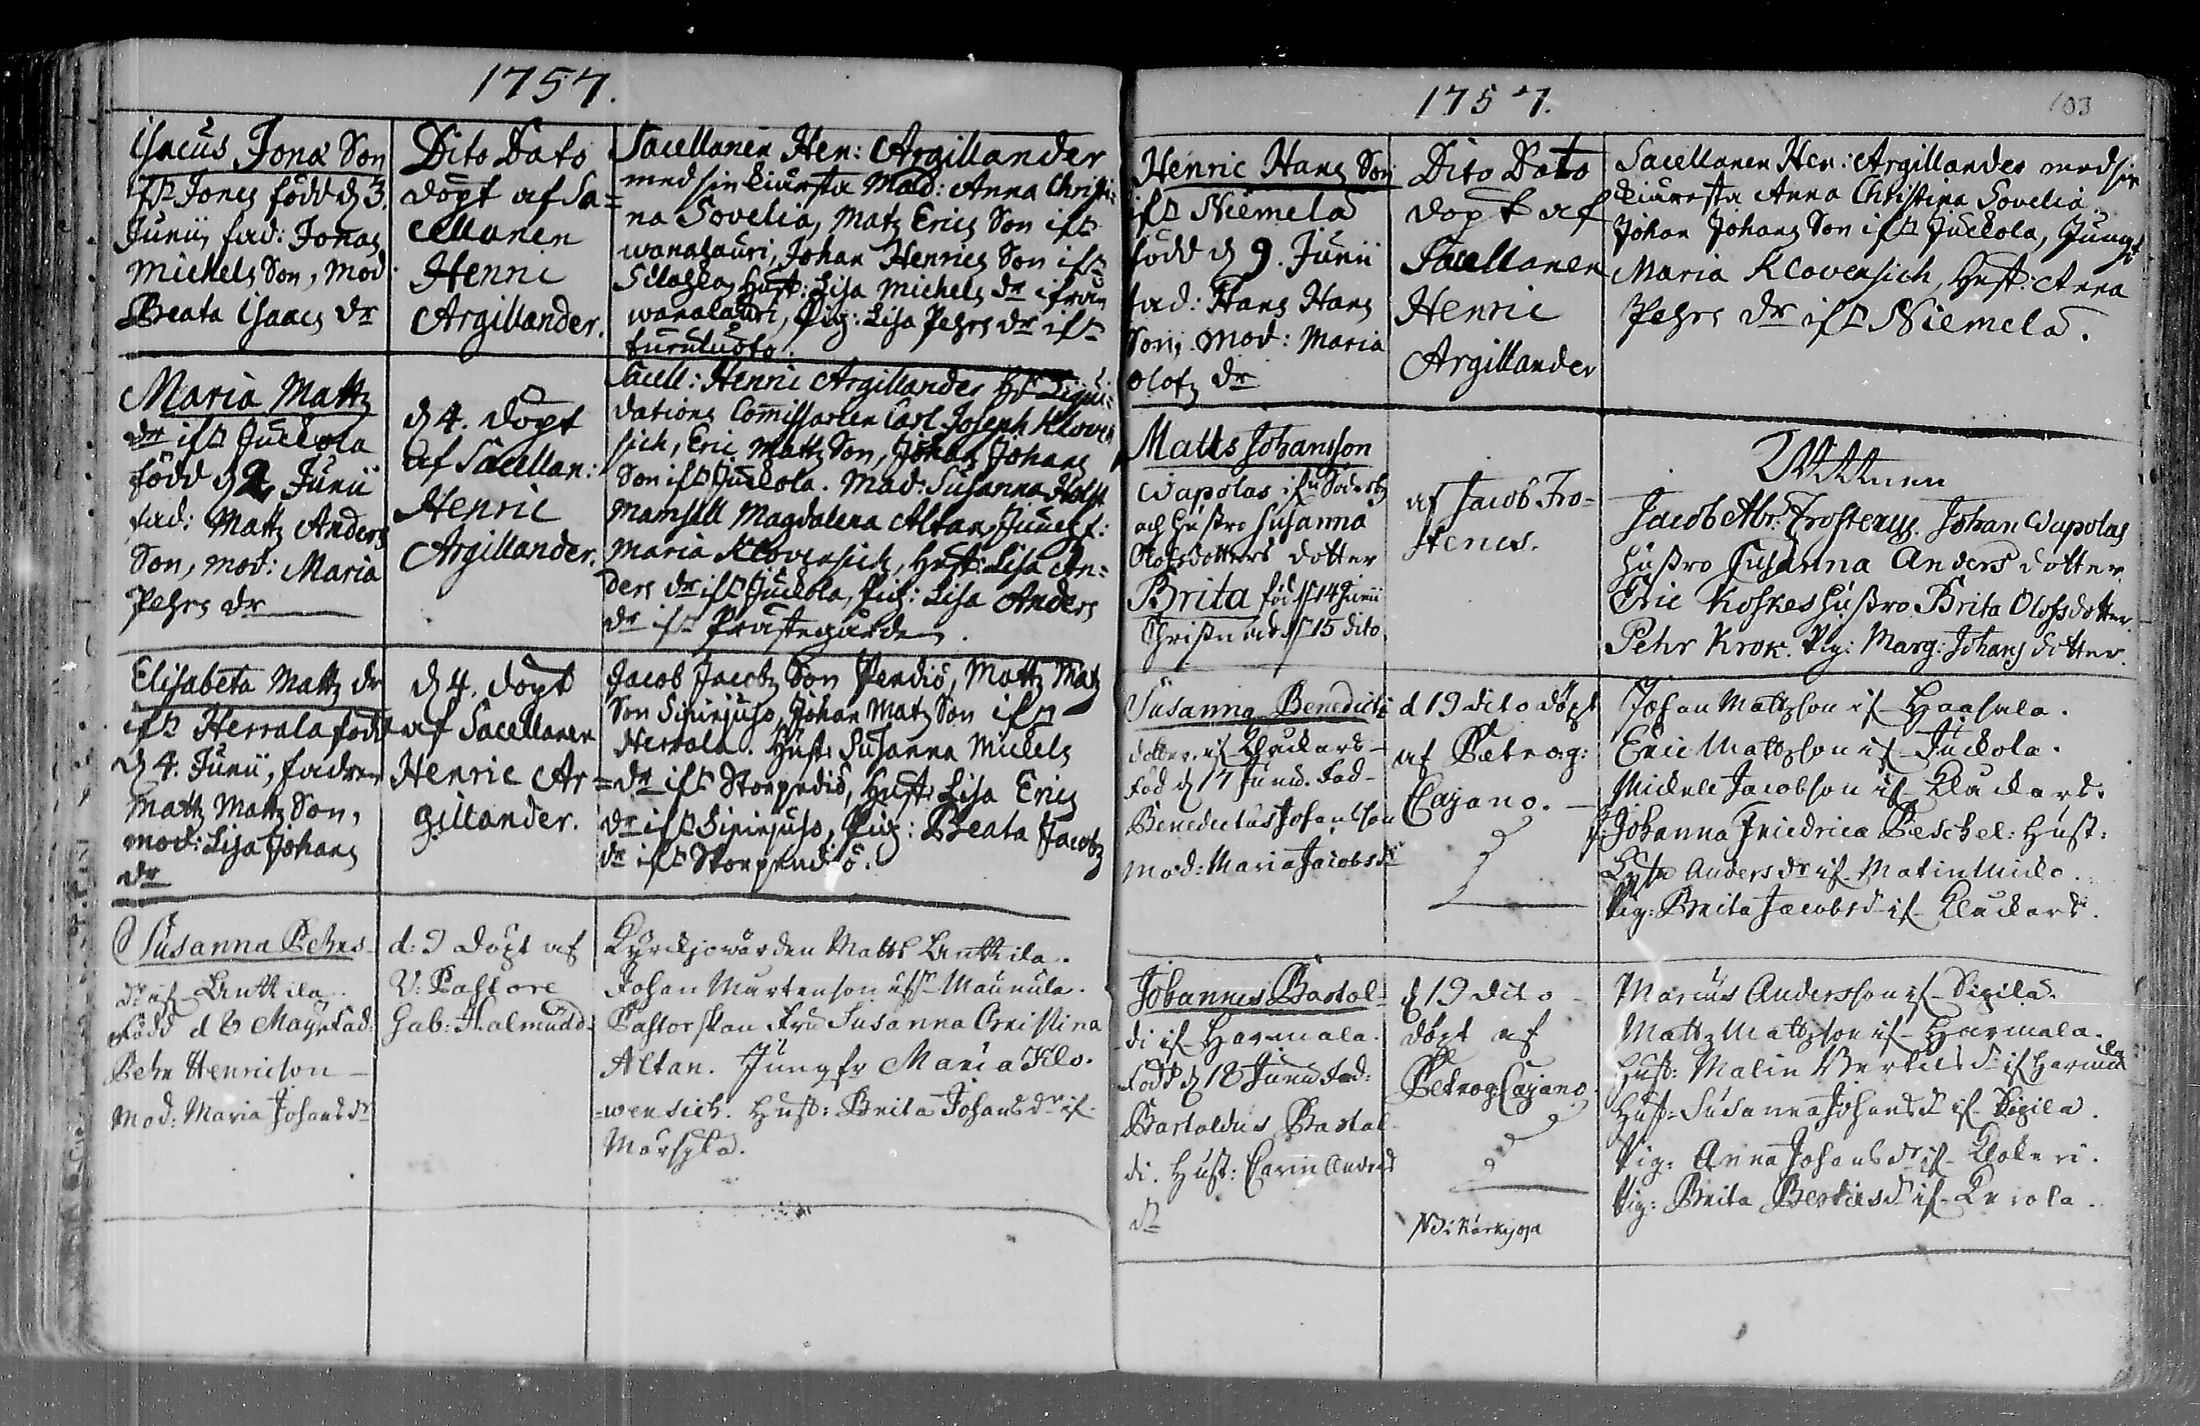 1757.
Isacus Jonæ Son
ifr Jones född d 3.
Junii, fad: Jonas
Michels Son, Mod:
Beata Isaacs dr
Dito Dato
döpt af Sa=
cellanen
Henric
Argillander.
Sacellanen Hen: Argillander
med sin kiæresta Mad: Anna Christi-
na Sovelia, Matz Erics Son ifr
wanalauri, Johan Henrics Son ifr
Hust: Lisa Michels dr ifrån
wanalauri, Pig: Lisa Pehrs dr ifr
Maria Mattz
dr ifr Juckola
född d 2 Junii
fad: Mattz Anders
Son, mod: Maria
Pehrs dr
d 4. döpt
af Sacellan:
Henric
Argillander.
Sacell: Henric Argillander Hr Liqui-
dations Commissarien Carl Joseph Klowen
sich, Eric Mattz Son, Johan Johans
Son ifr Juckola. Mad: Susanna Holst
Mamsell Magdalena Altan, Jungf:
Maria Klovensich, Hust: Lisa An=
ders dr ifr Juckola, Pig: Lisa Anders
dr ifr Prästegården.
Elisabeta Mattz dr
ifr Herrala född
d 4. Junii, fadren
Mattz Mattz Son,
mod: Lisa Johans
dr
d 4. döpt
af Sacellanen
Henric Ar=
gillander.
Jacob Jacobs Son Pendiö, Mattz Matz
Son Johan Matz Son ifr
Herrala. Hust: Susanna Michels
dr ifr Storpendiö, Hust: Lisa Erics
dr ifr Pig: Beata Jacobs
dr ifr Storpendiö.
Susanna Pehrs
dr if Anttila
född d 8 Maij fad:
Pehr Henricson
Mod: Maria Johans dr
d: 9 döpt af
V: Pastore
Gab: Halmudd
Kyrckjowärden Matts Anttila.
Johan Martenson Maunula.
Pastorskan Fru Susanna Christina
Altan. Jungfr Maria Klo-
-wensich. Hust: Brita Johans dr if
1757.
103
Henric Hans Son
ifr Niemelä
född d 9. Junii
fad: Hans Hans
Son, mod: Maria
Olofs dr
Dito Dato
döpt af
Sacellanen
Henric
Argillander
Sacellanen Hen: Argillander med sin
kiæresta Anna Christina Sovelia
Johan Johans Son ifr Juckola, Jungf
Maria Klovensich, Hust: Anna
Pehrs dr ifr Niemelä.
Matts Johansson
Wapolas if Söderby
och hustro Susanna
Olofsdotters dotter
Brita föd d 14 Junii
Christnad d 15 dito
af Jacob Fro-
stenes.
Wittnen
Jacob Abr: Frosterus. Johan Wapolas
hustro Susanna Anders dotter
Eric Koskes hustro Brita Olofsdotter.
Pehr Krok. Pig: Marg: Johans dotter.
Susanna Benedicti
dotter, if Kluckars
född d 17 Junii. Fad-
Benedictus Johansson
Mod: Maria Jacobs dr
d 19 dito döpt
af Petro g:
Cajano.
Johan Mattzson if Haapala.
Eric Mattzson if Juckola.
Michele Jacobson if Kluckars.
Johanna Friedrica Peschel: Hust:
Lysa Anders dr if Matinmicko.
Pig: Brita Jacobs d if Kluckars.
Johannes Bartol-
di if Harmala.
född d 18 Junii Fad:
Bartoldus Bartol
di. Hust: Carin Anders
dr
d 19 dito
döpt af
Petro g Cajano
Marcus Andersson if Sipilä.
Mattz Mattzson if Harmala.
Hust: Malin Bertils d if Harmala
Hust: Susanna Johans d if Sipilä.
Pig: Anna Johans dr if
Pig: Brita Bertils d if